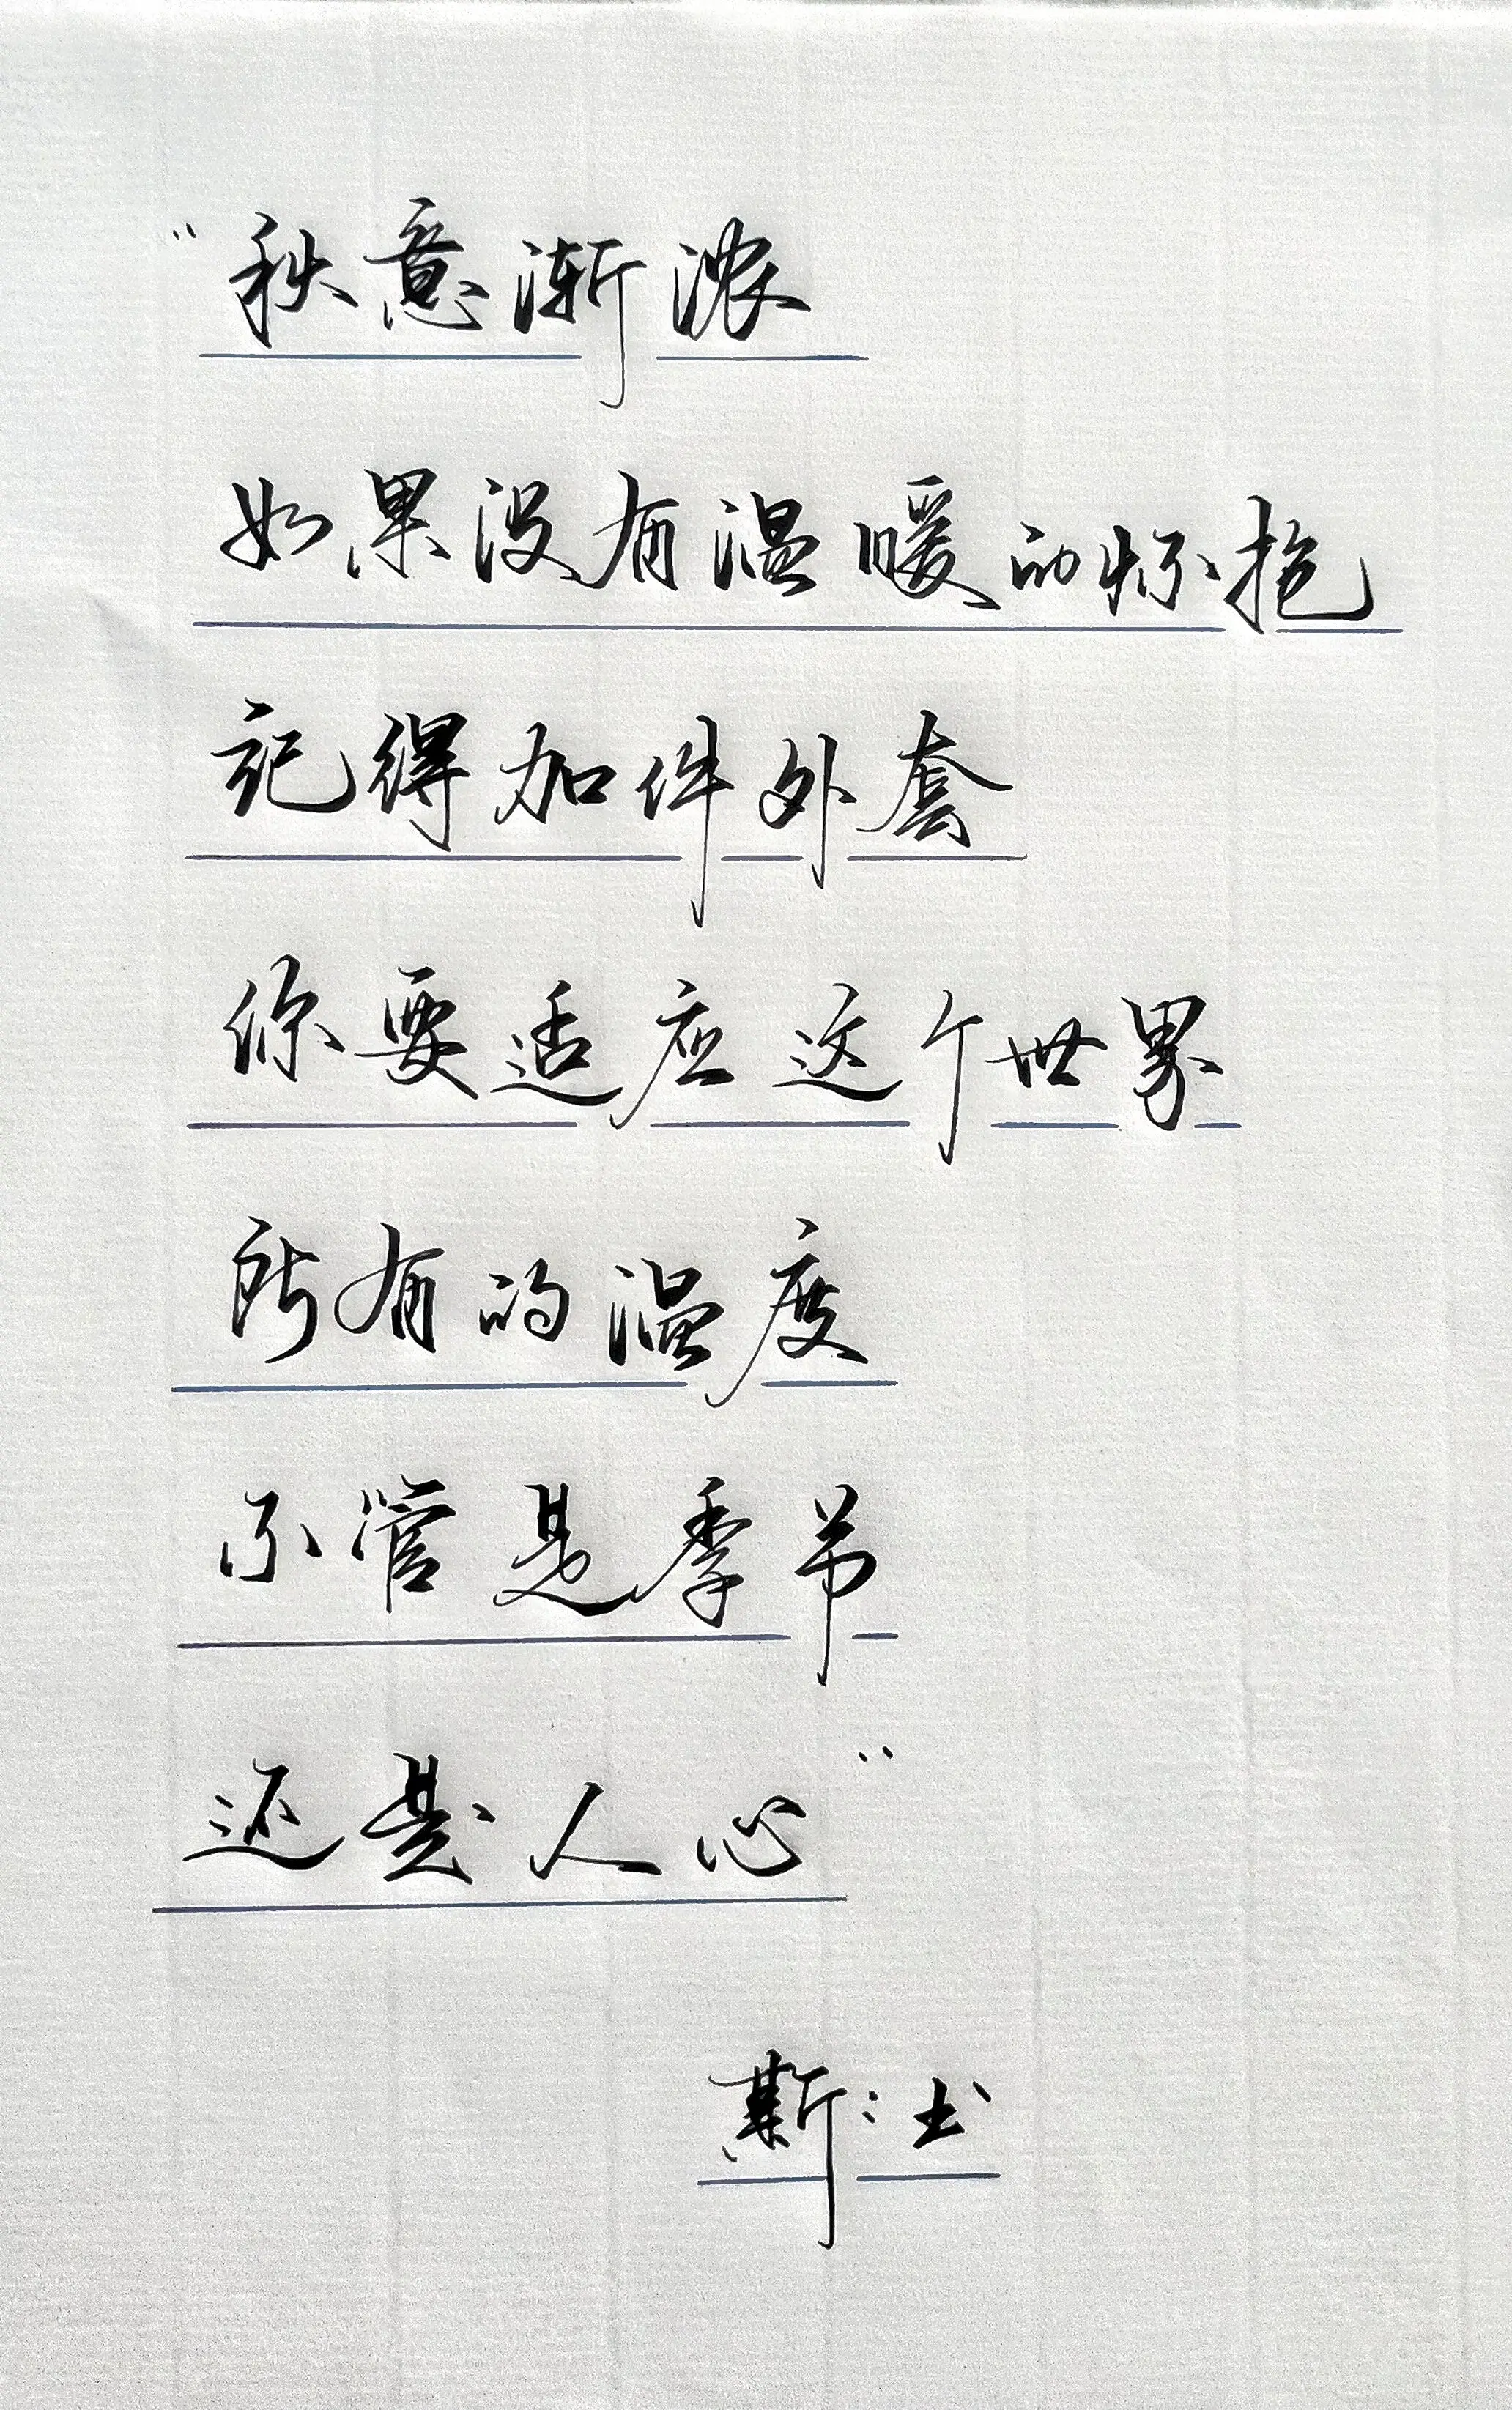 “秋意渐浓
如果没有温暖的怀抱
记得加件外套
你要适应这个世界
所有的温度
不管是季节
还是人心”
斯:书